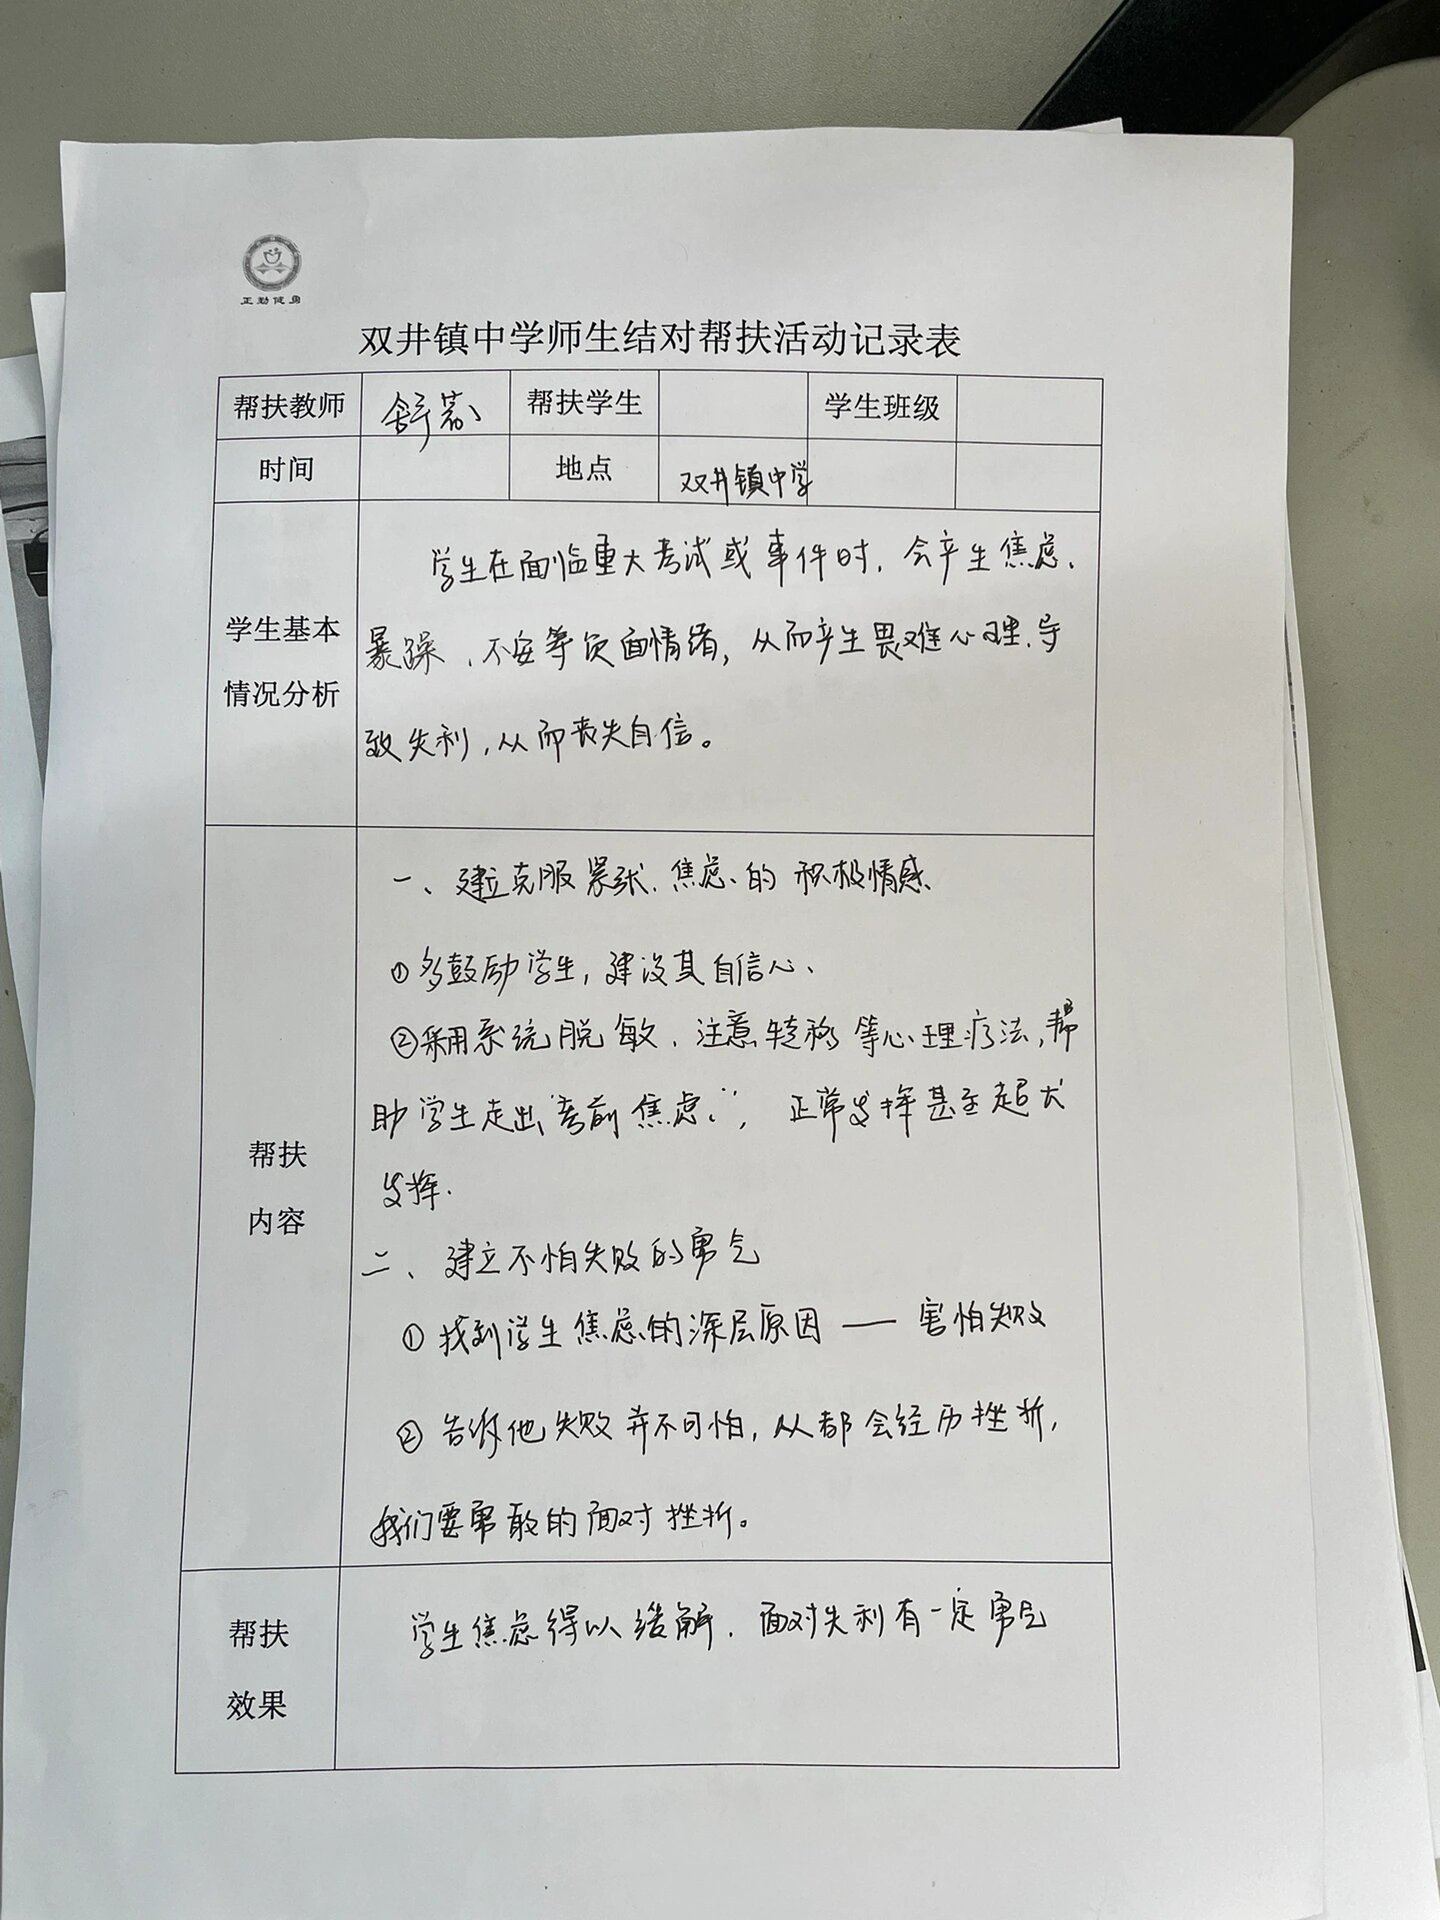 正勤健勇
双井镇中学师生结对帮扶活动记录表
帮扶教师 舒 帮扶学生 学生班级
时间 地点 双井镇中学
学生基本
情况分析
学生在面临重大考试或事件时，会产生焦虑、
暴躁、不安等负面情绪，从而产生畏难心理，导
致失利，从而丧失自信。
帮扶
内容
一、建立克服紧张、焦虑的积极情感
①多鼓励学生，建设其自信心、
②采用系统脱敏、注意转移等心理疗法，帮
助学生走出“考前焦虑”，正常发挥甚至超犬
发挥.
二、建立不怕失败的勇气
①找到学生焦虑的深层原因——害怕失败
②告诉他失败并不可怕，人都会经历挫折，
我们要勇敢的面对挫折。
帮扶
效果
学生焦虑得以缓解，面对失利有一定勇气